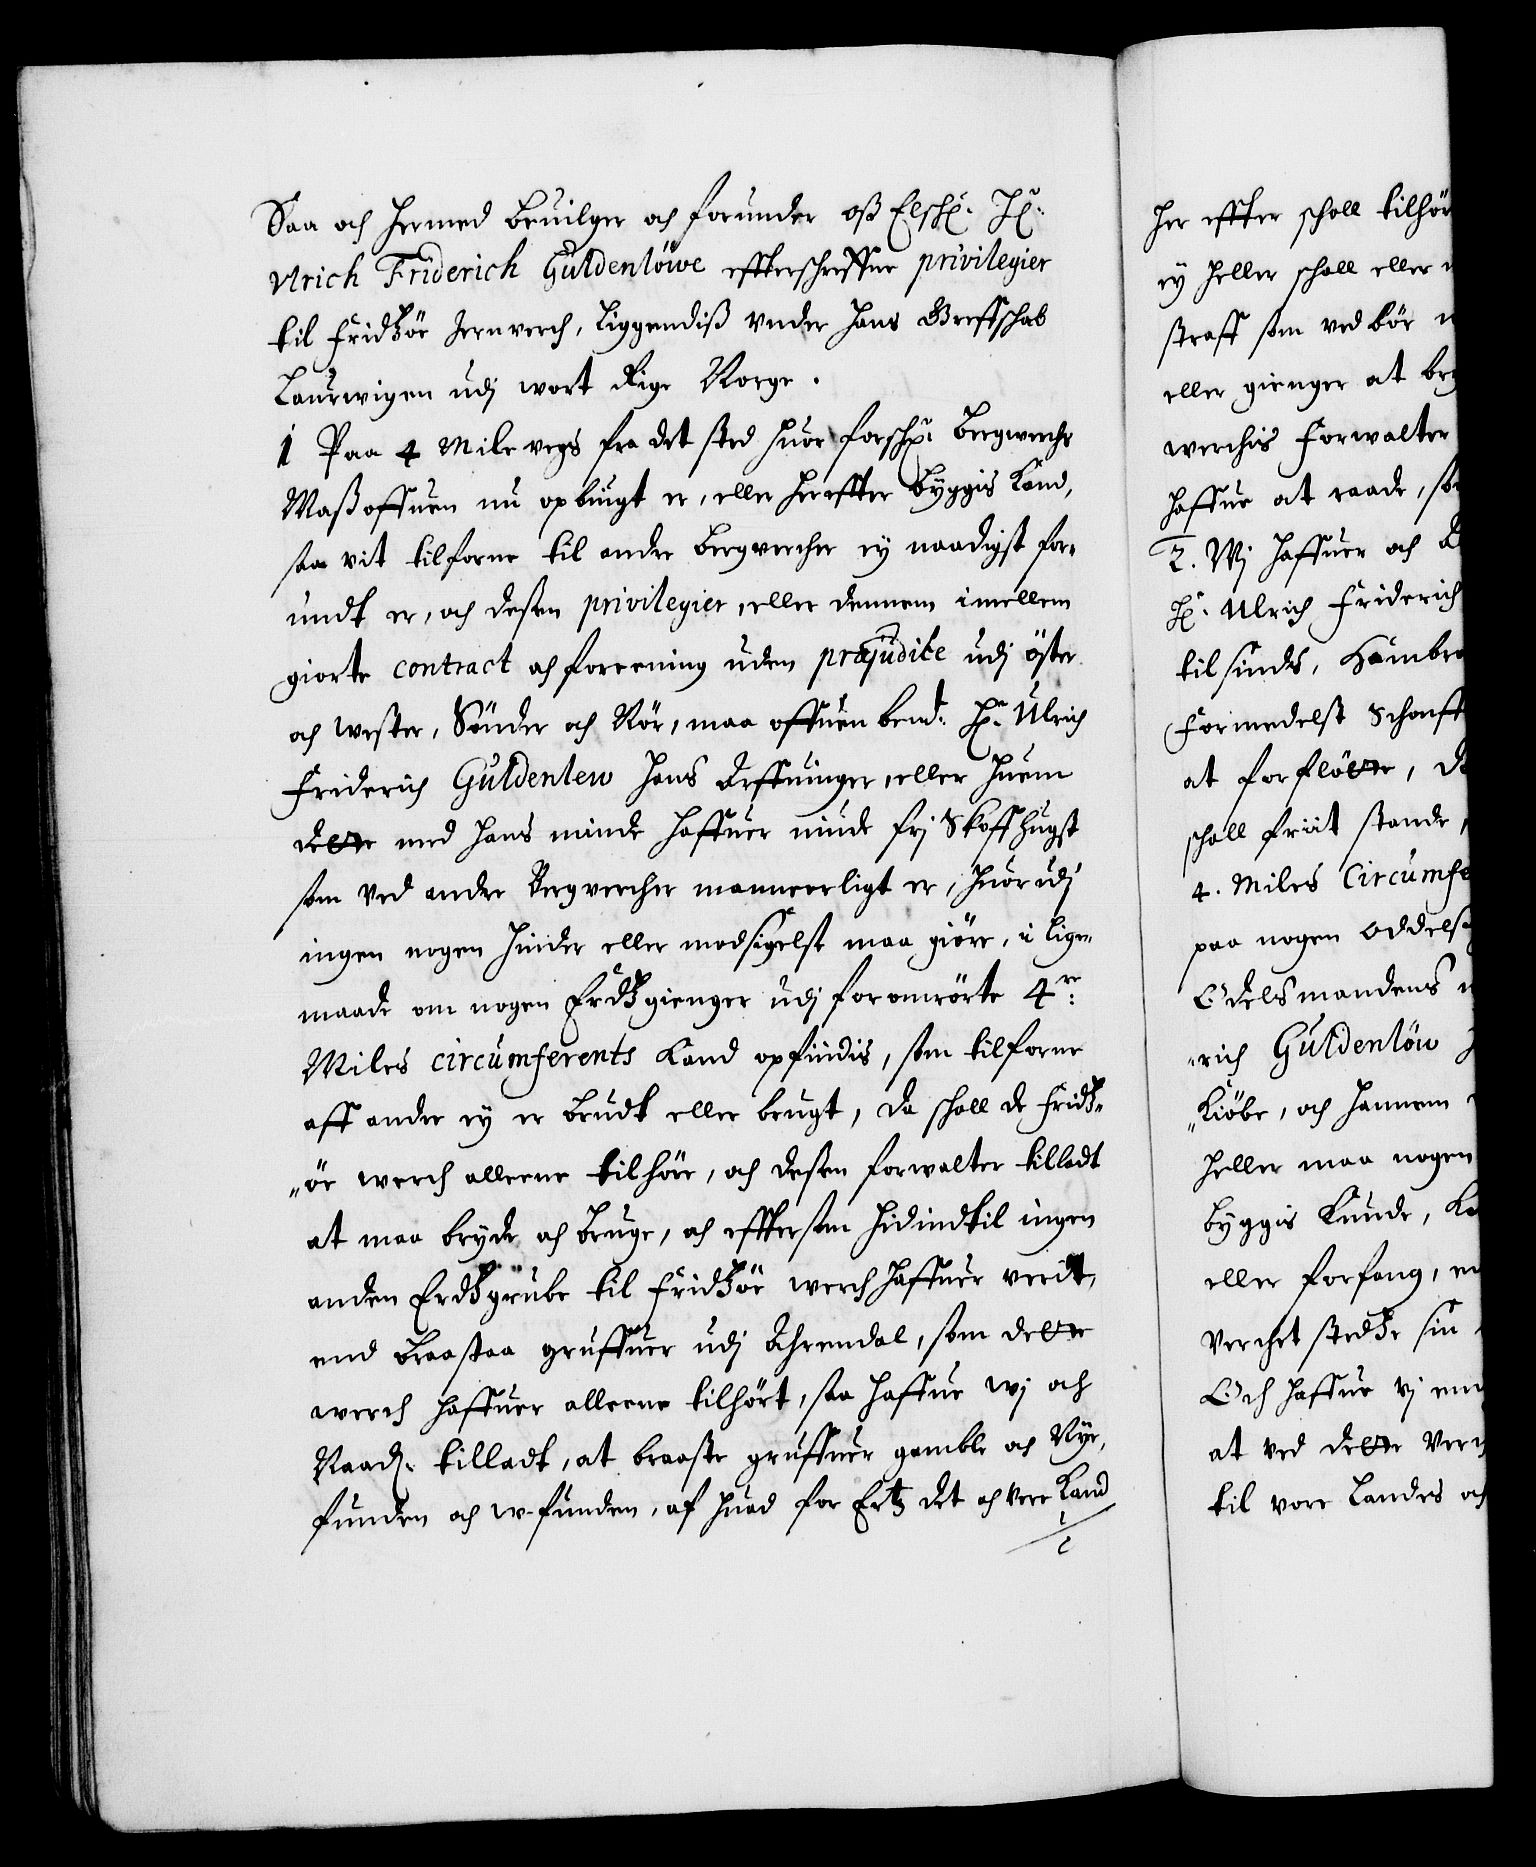 Saa och hermed beuilger och forunder oß Elskel: Hr:
Vlrich Friderich Güldenlöwe effterschreffne privilegier
til Fridtzör Jernverch, liggendiß vnder hans Greffschab
Laurwigen udj wort Rige Norge.
1 Paa 4 Mile vegs fra det sted huor forschr: bergwerchs
Maßoffuen nu opbiugt er, eller hereffter byggis kand,
saa vit tilforne til andre bergvercher ey naadigst for-
undt er, och desen privilegier, eller dennem imellem
giorte contract och foreening uden præjudice udj öster
och wester, Sönder och Nör, maa offuen bend: Hr: Ulrich
Friderich Güldenlew hans Arffuinger, eller huem
dette med hans minde haffuer niude frj Skoffhugst
som ved andre Bergvercher manneerligt er, huorudj
ingen nogen hinder eller modsigelse maa giöre, i lige-
maade om nogen Erdtzgienger udj foromrörte 4re:
Miles circumferents kand opfindis, som tilforne
aff andre ey er brudt eller brugt, da skall de Fridtz-
ör werch alleene tilhöre, och desen forwalter tilladt
at maa bryde och bruge, och efftersom hidindtil ingen
anden Erdtzgrube til Fridtzör werch haffuer verit,
end Braastaa gruffuer udj Ahrendal, som dette
werch haffuer alleene tilhört, saa haffue wj och
Naadl. tilladt, at braaste gruffuer gamble och Nye,
funden och w-funden, af huad for Ertz det och vere kand
her effter skall tilhör
ey heller skall eller
straff som ved bör
eller gienger at bry
werchis Forwalter
haffue at raade, so
2. Wj haffuer och
Hr: Ulrich Friderich
til sinds,
Formedelst
at forflötte, d
skall friit stande,
4. Miles Circumfe
paa nogen oddels
Odelsmandens
-rich Güldenlöw
-Kiöbe, och hannem
heller maa nogen
byggis kunde,
eller forfang, en
Verchet stedtze sin
Och haffue vj en
at ved dette Verc
til vore Landes och